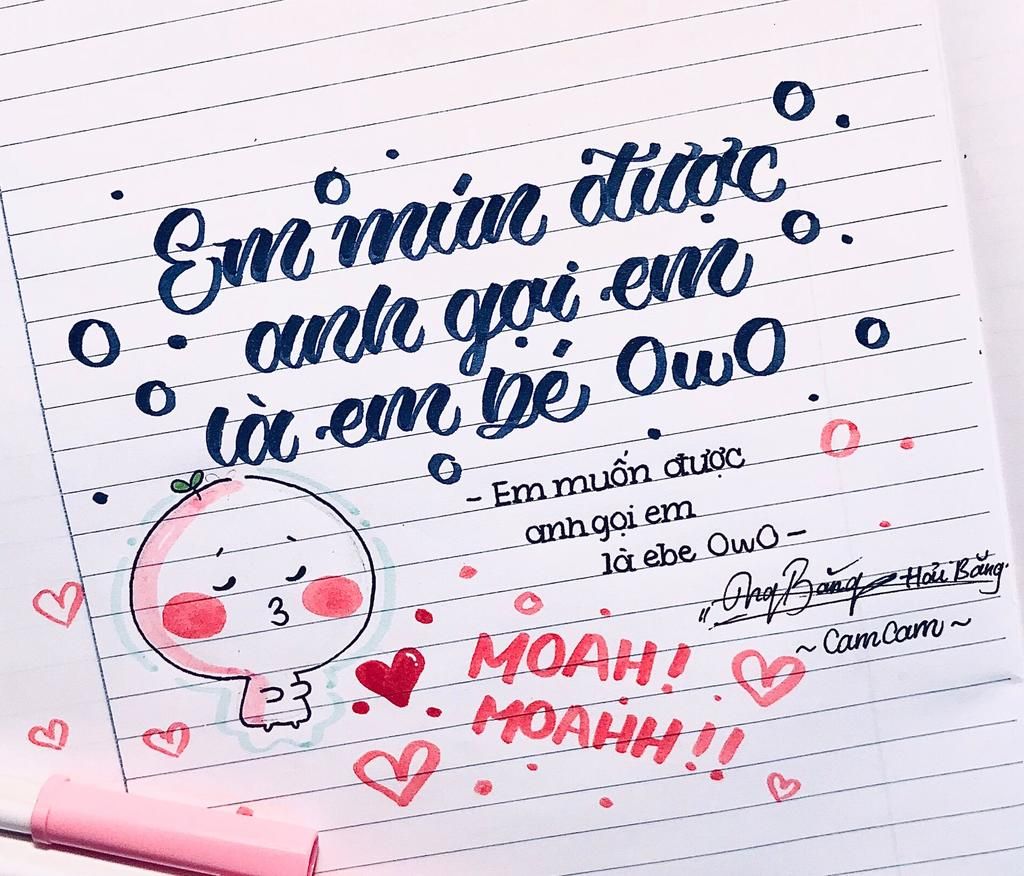 Em mún được
anh gọi em
là em bé OwO
- Em muốn được
anh gọi em
là ebe OwO -
Hải Băng
~ CamCam ~
MOAH!
MOAHH!!